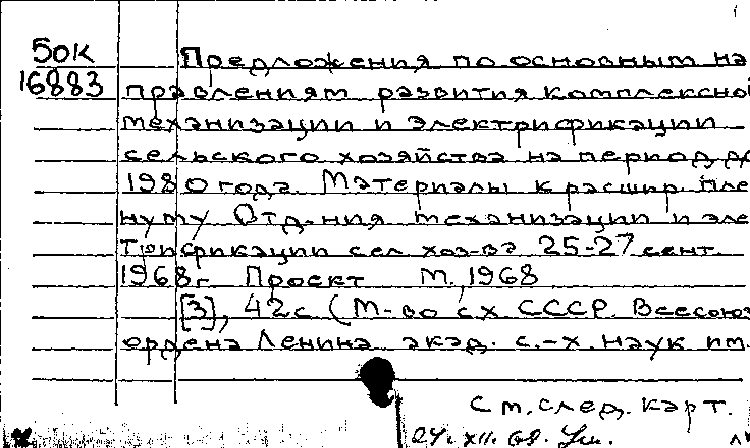 БОК
16883
Предложения по основным на
правлениям развития комплексной
механизации и электрификации
сельского хозяйства на период до
1980 года. Материалы к расшир. пле
нуму Отд-ния механизации и элек
трификации сел. хоз-ва 25-27 сент.
1968г. Проект М., 1968
[3], 42с (М-во с.х. СССР. Всесоюз
ордена Ленина акад. с.-х. наук им.
См. след. карт.
24.XII.68.